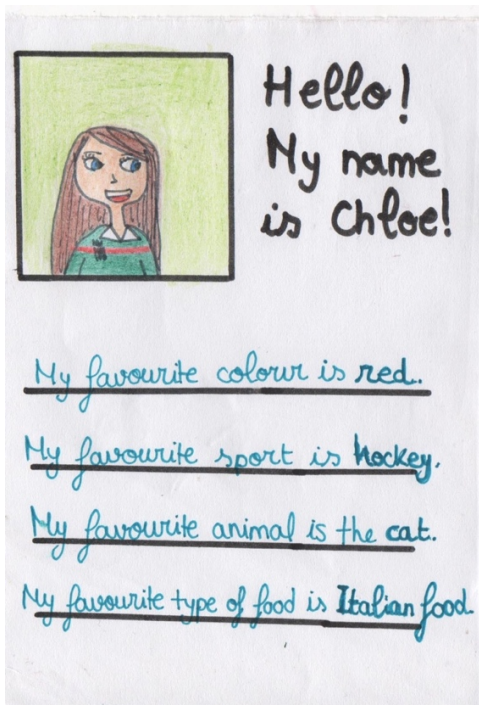 Hello!
My name
is Chloe!
My favourite colour is red.
My favourite sport is hockey.
My favourite animal is the cat.
My favourite type of food is Italian food.